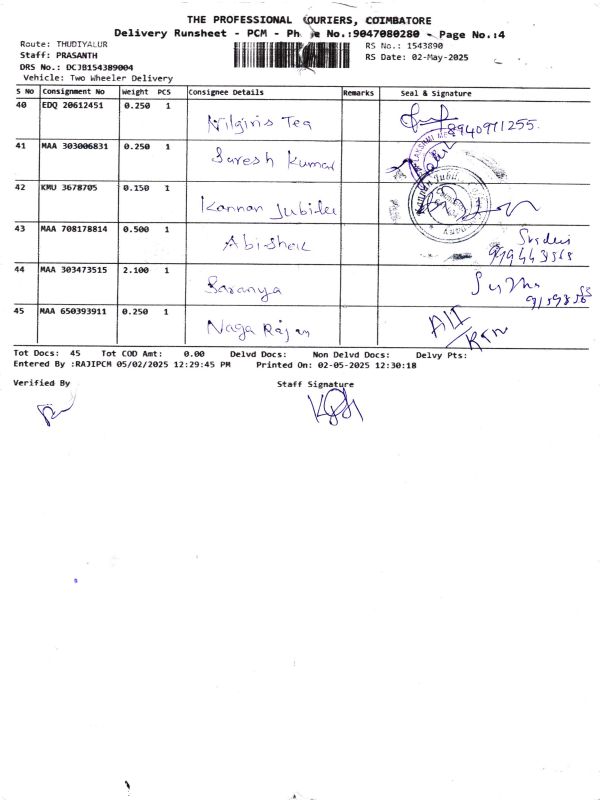 THE PROFESSIONAL COURIERS, COIMBATORE
Delivery Runsheet - PCM - Phone No.:9047080280 - Page No.:4
Route: THUDIYALUR
RS No.: 1543890
Staff: PRASANTH
RS Date: 02-May-2025
DRS No.: DCJB154389004
Vehicle: Two Wheeler Delivery
S No Consignment No Weight PCS Consignee Details Remarks Seal & Signature
40 EDQ 20612451 0.250 1 Nilgiris Tea 8940971255
41 MAA 303006831 0.250 1 Suresh Kumar
42 KMU 3678705 0.150 1 Kannan Jubilee
43 MAA 708178814 0.500 1 Abishek
44 MAA 303473515 2.100 1 Saranya
45 MAA 650393911 0.250 1 Naga Rajan
Tot Docs: 45 Tot COD Amt: 0.00 Delvd Docs: Non Delvd Docs: Delvy Pts:
Entered By :RAJIPCM 05/02/2025 12:29:45 PM Printed On: 02-05-2025 12:30:18
Verified By Staff Signature